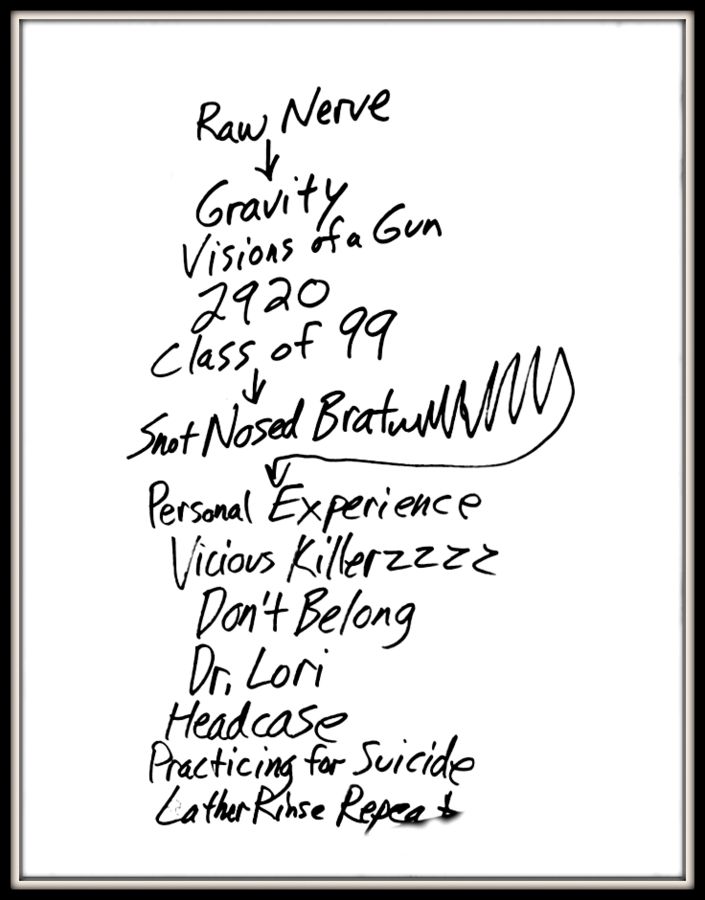 Raw Nerve
Gravity
Visions of a Gun
2920
Class of 99
Snot Nosed Brat
Personal Experience
Vicious Killerzzzz
Don't Belong
Dr. Lori
Headcase
Practicing for Suicide
Lather Rinse Repeat